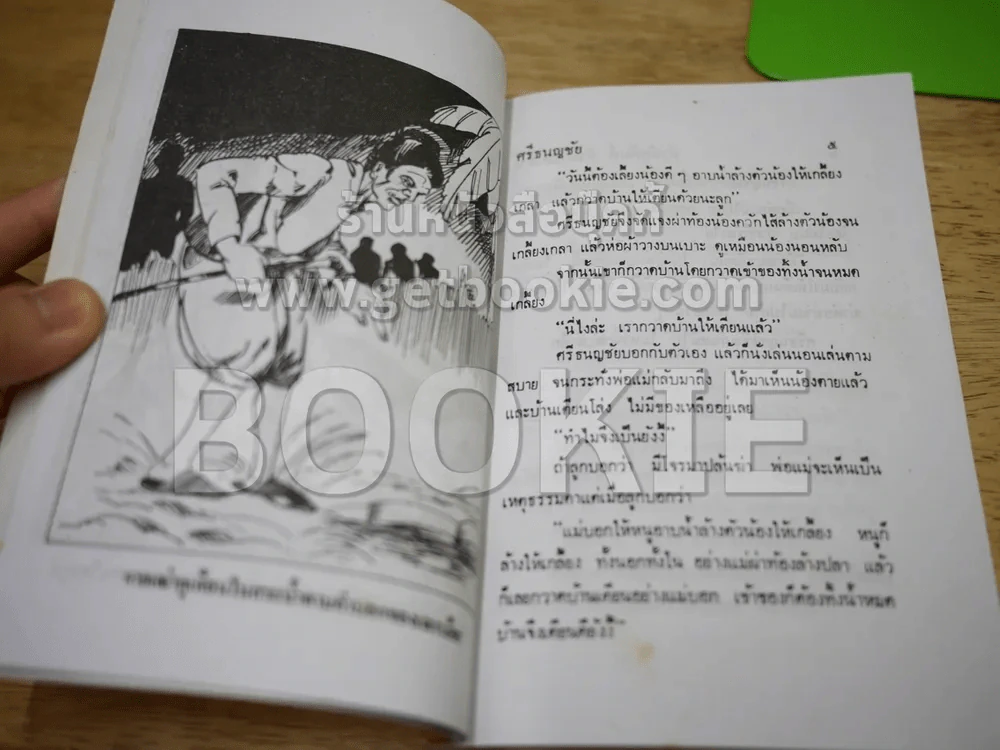 ศรีธนญชัย ๕
"วันนี้ต้องเลี้ยงน้องดี ๆ อาบน้ำล้างตัวน้องให้เกลี้ยง
เกลา แล้วกวาดบ้านให้เตียนด้วยนะลูก"
ศรีธนญชัยจึงจัดแจงผ่าท้องน้องควักไส้ล้างตัวน้องจน
เกลี้ยงเกลา แล้วห่อผ้าวางบนเบาะ ดูเหมือนน้องนอนหลับ
จากนั้นเขาก็กวาดบ้านโดยกวาดเข้าของทิ้งน้ำจนหมด
เกลี้ยง
"นี่ไงล่ะ เรากวาดบ้านให้เตียนแล้ว"
ศรีธนญชัยบอกกับตัวเอง แล้วก็นั่งเล่นนอนเล่นตาม
สบาย จนกระทั่งพ่อแม่กลับมาถึง ได้มาเห็นน้องตายแล้ว
และบ้านเตียนโล่ง ไม่มีของเหลืออยู่เลย
"ทำไมจึงเป็นยังงี้"
ถ้าลูกบอกว่า มีโจรมาปล้นฆ่า พ่อแม่จะเห็นเป็น
เหตุธรรมดาแต่เมื่อลูกบอกว่า
"แม่บอกให้หนูอาบน้ำล้างตัวน้องให้เกลี้ยง หนูก็
ล้างให้เกลี้ยง ทั้งนอกทั้งใน อย่างแม่ผ่าท้องล้างปลา แล้ว
ก็เลยกวาดบ้านเตียนอย่างแม่บอก เข้าของก็ต้องทิ้งน้ำหมด
บ้านจึงเตียนดียังงี้"
www.getbookie.com
BOOKIE